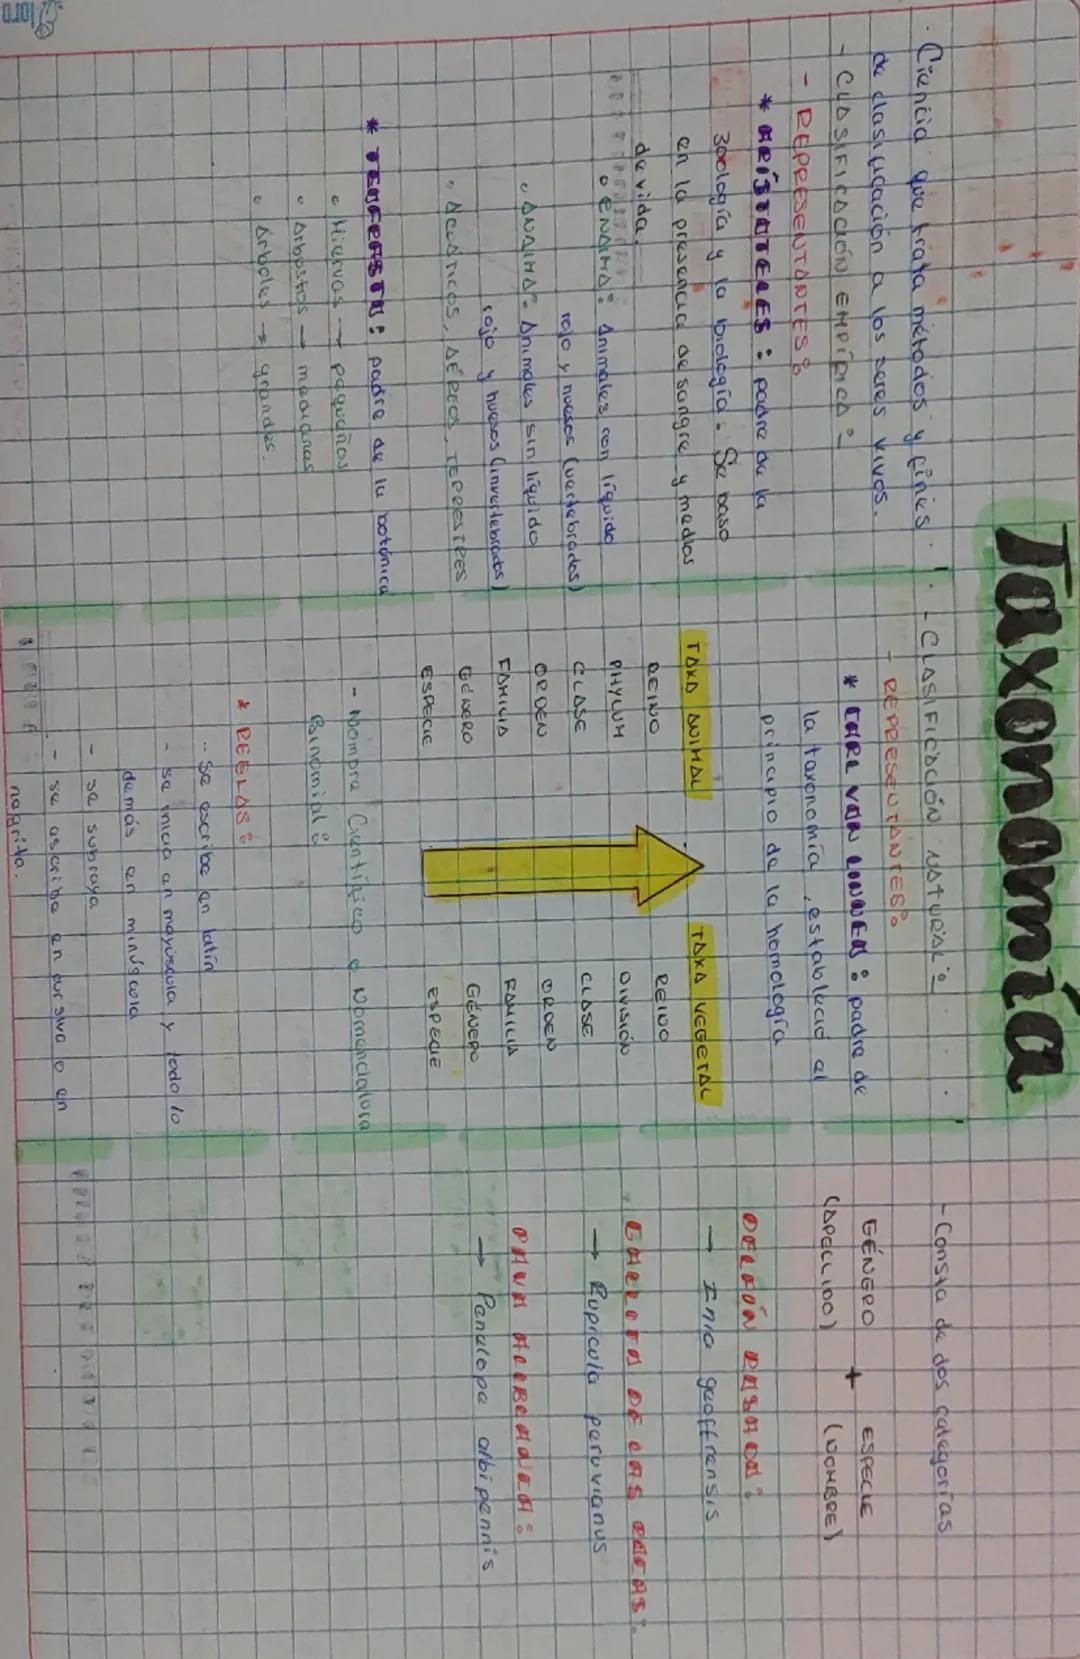 Taxonomía
· Ciencia que trata métodos y fines
de clasificación a los seres vivos.
- CLASIFICACIÓN EMPÍRICA:
- REPRESENTANTES:
* ARÍSTOTELES: padre de la
zoología y la biología. Se baso
en la presencia de sangre y medios
de vida.
◦ ENAIMA: Animales con líquido
rojo y huesos (vertebrados)
◦ ANAIMA: Animales sin líquido
rojo y huesos (invertebrados)
◦ ACUÁTICOS, AÉREOS, TERRESTRES
* TEOFRASTO: padre de la botánica
◦ Hiervas → pequeños
◦ Arbustos → medianas
◦ Árboles → grandes.
- CLASIFICACIÓN NATURAL:
- REPRESENTANTES:
* CARL VON LINNEO: padre de
la taxonomía, estableció el
principio de la homología
TAXA ANIMAL
REINO
PHYLUM
CLASE
ORDEN
FAMILIA
GÉNERO
ESPECIE
TAXA VEGETAL
REINO
DIVISIÓN
CLASE
ORDEN
FAMILIA
GÉNERO
ESPECIE
- Nombre Científico o Nomenclatura
Binomial:
* REGLAS:
- Se escribe en latín
- se inicia en mayúscula y todo lo
demás en minúscula
- se subraya
- se escribe en cursiva o en
negrita.
- Consta de dos categorías
GÉNERO + ESPECIE
(APELLIDO) (NOMBRE)
DELFÍN ROSADO:
→ Inia geoffrensis
GALLITO DE LAS ROCAS:
→ Rupicula peruvianus
PAVA ALIBLANCA:
→ Penelope albipennis
loro